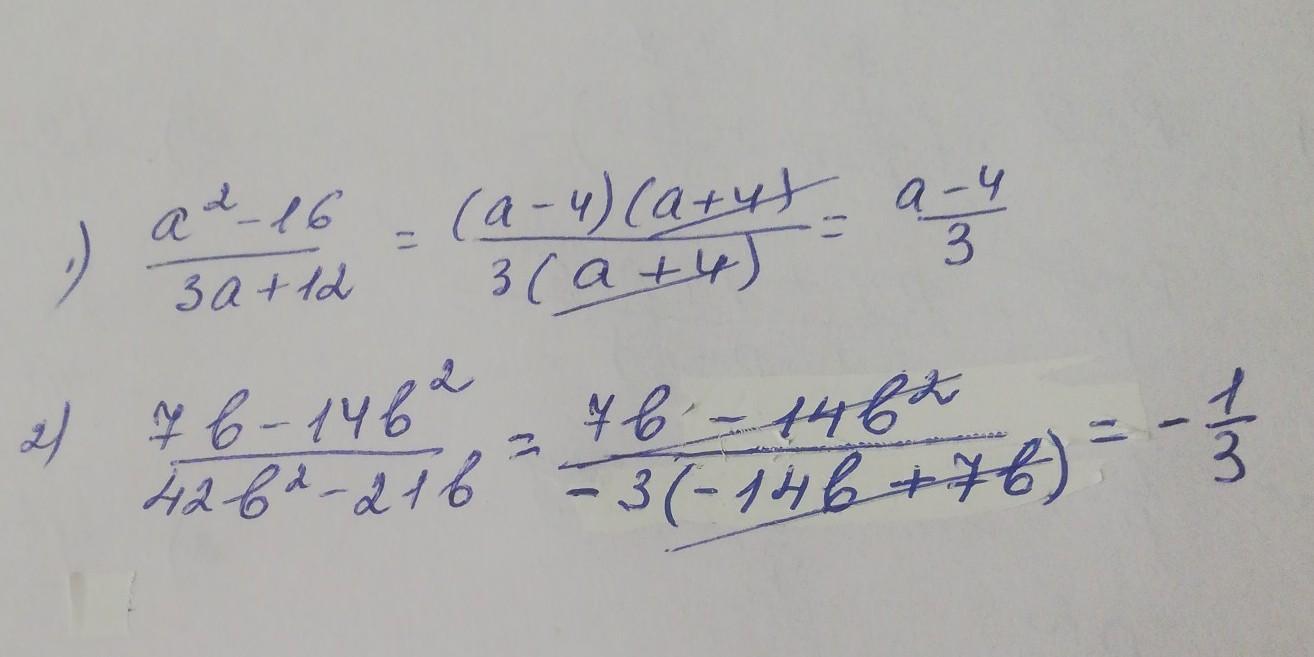 1) (a² - 16)/(3a + 12) = ((a - 4)(a + 4))/(3(a + 4)) = (a - 4)/3
2) (7b - 14b²)/(42b² - 21b) = (7b - 14b²)/(-3(-14b + 7b)) = -1/3